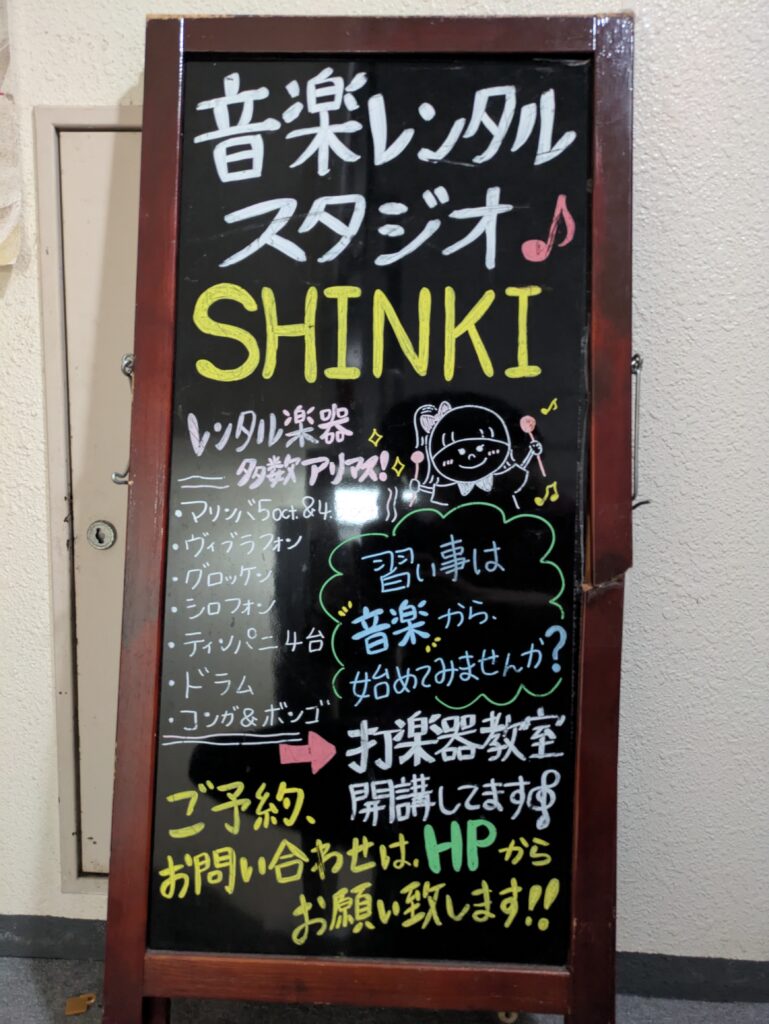 音楽レンタル
スタジオ♪
SHINKI
レンタル楽器
多数アリマス!
・マリンバ5oct.&4.
・ヴィブラフォン
・グロッケン
・シロフォン
・ティンパニ4台
・ドラム
・コンガ&ボンゴ
習い事は
音楽から、
始めてみませんか?
→打楽器教室
開講してます
ご予約、
お問い合わせは、HPから
お願い致します!!